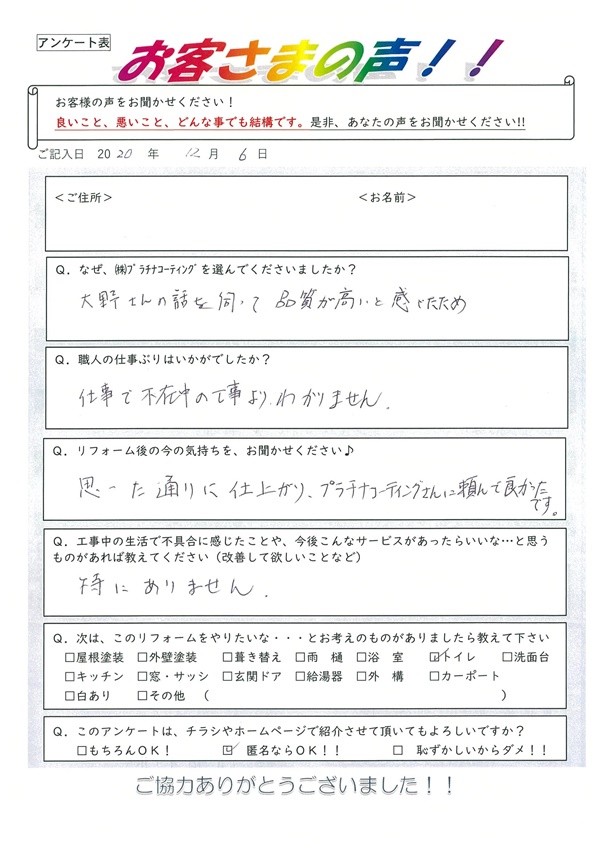 アンケート表
お客さまの声!!
お客様の声をお聞かせください!
良いこと、悪いこと、どんな事でも結構です。是非、あなたの声をお聞かせください!!
ご記入日 2020 年 12 月 6 日
<ご住所> <お名前>
Q. なぜ、㈱プラチナコーティングを選んでくださいましたか?
大野さんの話を伺って品質が高いと感じたため
Q. 職人の仕事ぶりはいかがでしたか?
仕事で不在中の工事より、わかりません.
Q. リフォーム後の今の気持ちを、お聞かせください♪
思った通りに仕上がり、プラチナコーティングさんに頼んで良かった
です。
Q. 工事中の生活で不具合に感じたことや、今後こんなサービスがあったらいいな…と思う
ものがあれば教えてください(改善して欲しいことなど)
特にありません.
Q. 次は、このリフォームをやりたいな・・・とお考えのものがありましたら教えて下さい
□屋根塗装 □外壁塗装 □葺き替え □雨 樋 □浴 室 ☑トイレ □洗面台
□キッチン □窓・サッシ □玄関ドア □給湯器 □外 構 □カーポート
□白あり □その他 ( )
Q. このアンケートは、チラシやホームページで紹介させて頂いてもよろしいですか?
□もちろんOK! ☑ 匿名ならOK!! □ 恥ずかしいからダメ!!
ご協力ありがとうございました!!